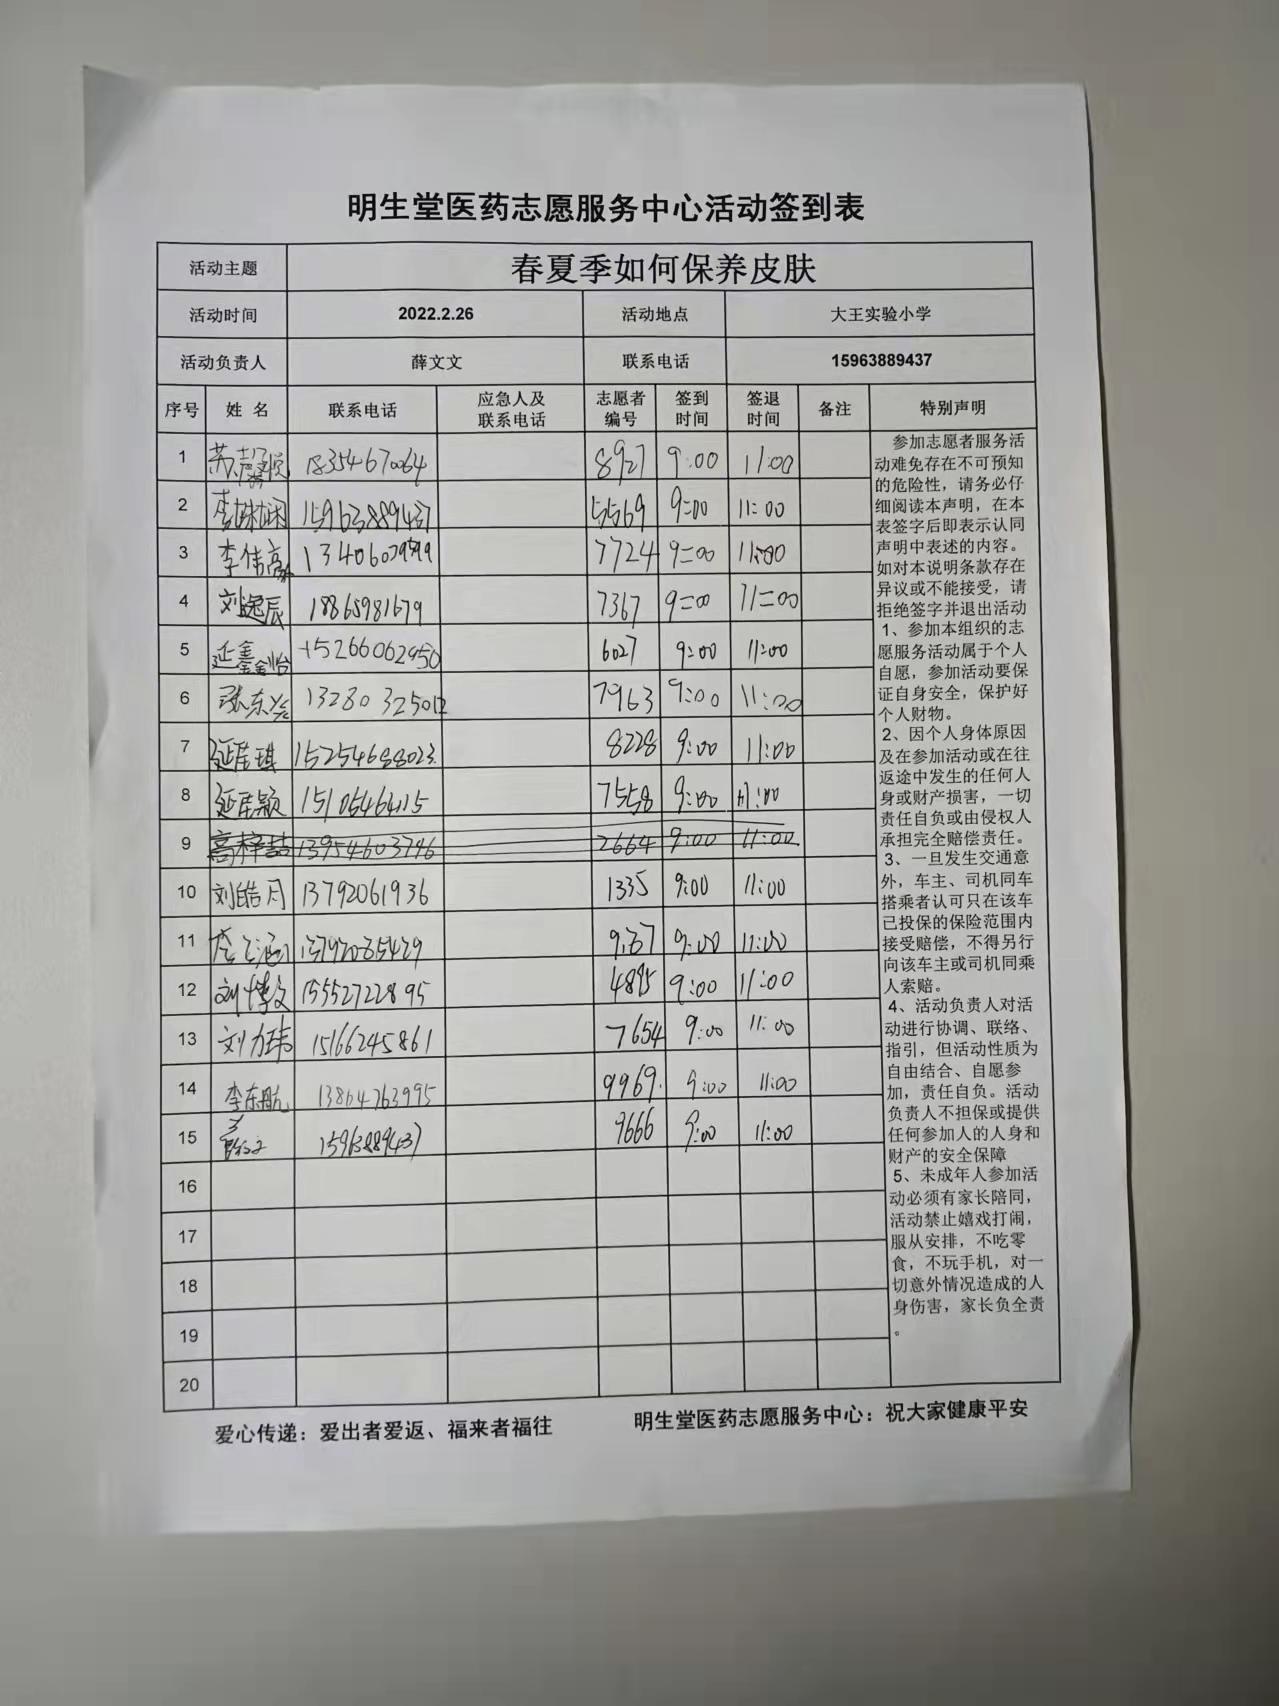 明生堂医药志愿服务中心活动签到表
活动主题 春夏季如何保养皮肤
活动时间 2022.2.26 活动地点 大王实验小学
活动负责人 薛文文 联系电话 15963889437
序号 姓名 联系电话 应急人及联系电话 志愿者编号 签到时间 签退时间 备注 特别声明
1 18354670064 8927 9:00 11:00
2 15963889437 5569 9:00 11:00
3 李伟 7724 9:00 11:00
4 刘逸辰 18865981679 7367 9:00 11:00
5 延鑫怡 15266062950 6027 9:00 11:00
6 张东 13280325012 7963 9:00 11:00
7 延君琪 15254688023 8228 9:00 11:00
8 延君颖 7558 9:00 11:00
9 高梓喆 13954603746 2664 9:00 11:00
10 刘皓月 13792061936 1335 9:00 11:00
11 9:00 11:00
12 刘博文 15552722895 4895 9:00 11:00
13 刘力玮 15166245861 7654 9:00 11:00
14 李东航 13864763995 9969 9:00 11:00
15 15963889437 9666 9:00 11:00
16
17
18
19
20
参加志愿者服务活
动难免存在不可预知
的危险性，请务必仔
细阅读本声明，在本
表签字后即表示认同
声明中表述的内容。
如对本说明条款存在
异议或不能接受，请
拒绝签字并退出活动
1、参加本组织的志
愿服务活动属于个人
自愿，参加活动要保
证自身安全，保护好
个人财物。
2、因个人身体原因
及在参加活动或在往
返途中发生的任何人
身或财产损害，一切
责任自负或由侵权人
承担完全赔偿责任。
3、一旦发生交通意
外，车主、司机同车
搭乘者认可只在该车
已投保的保险范围内
接受赔偿，不得另行
向该车主或司机同乘
人索赔。
4、活动负责人对活
动进行协调、联络、
指引，但活动性质为
自由结合、自愿参
加，责任自负。活动
负责人不担保或提供
任何参加人的人身和
财产的安全保障
5、未成年人参加活
动必须有家长陪同，
活动禁止嬉戏打闹，
服从安排，不吃零
食，不玩手机，对一
切意外情况造成的人
身伤害，家长负全责
。
爱心传递：爱出者爱返、福来者福往 明生堂医药志愿服务中心：祝大家健康平安